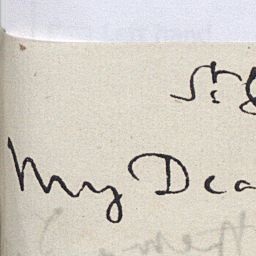 St. 
My Dea